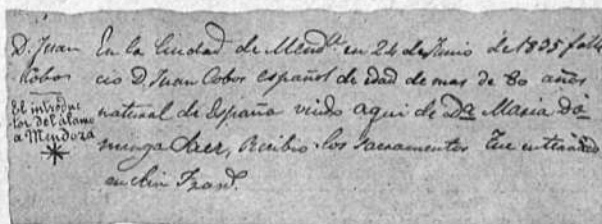 D. Juan
Cobos
El introduc
tor del alamo
a Mendoza
En la Ciudad de Mend.ª en 24 de Junio de 1835 falle
cio D. Juan Cobos español de edad de mas de 80 años
natural de España viudo aqui de D.ª Maria Do-
minga Saez, Recibio los Sacramentos Fue enterrado
en Fran.